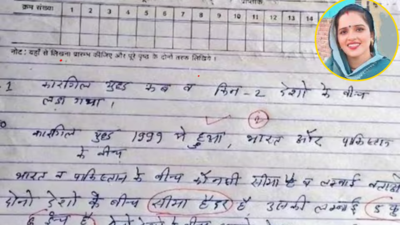 क्रम संख्या 1 2 3 4 5 6 7 8 9 10 11 12 13 14
नोट : यहाँ से लिखना प्रारम्भ कीजिए और पूरे पृष्ठ के दोनों तरफ लिखिये ।
1 कारगिल युद्ध कब व किन-2 देशो के बीच
लड़ा गया ।
कारगिल युद्ध 1999 मे हुआ, भारत और पाकिस्तान
के बीच
भारत व पाकिस्तान के बीच कौनसी सीमा है व लम्बाई बताओ
दोनो देशो के बीच सीमा हैदर है उसकी लम्बाई 5 फु
6 इंच है